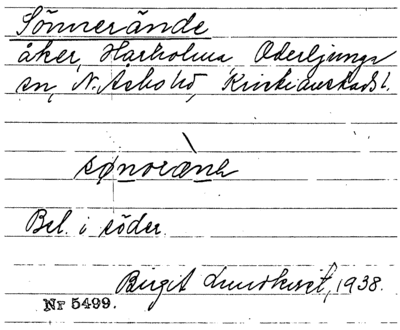 Sönnerände
åker, Harholma, Oderljunga
sn, N. Åsbo hd, Kristianstads l.
sønoræna
Bel. i söder.
Birgit Lundkvist, 1938.
Nr 5499.